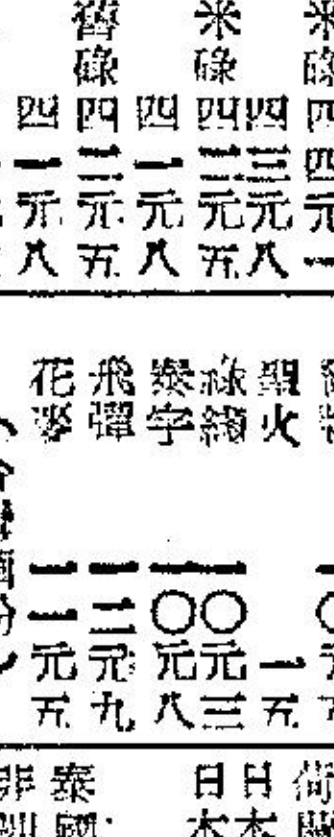 米碌四四元一
四三元八
米碌四三元五
四一元八
舊碌四三元五
四一元八
聖火一五
綠線一〇元三
泰字一〇元八
飛彈一二元九
花麥一一元五
日本
日本
泰國
非